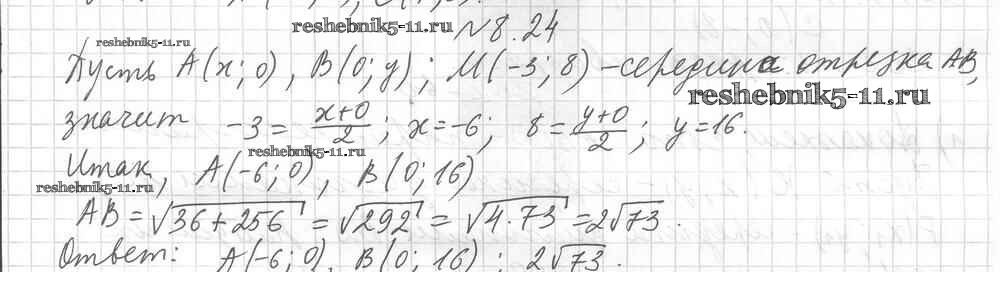 reshebnik5-11.ru №8.24
reshebnik5-11.ru
Пусть A(x; 0), B(0; y); M(-3; 8) - середина отрезка AB,
reshebnik5-11.ru
значит -3 = (x+0)/2; x = -6; 8 = (y+0)/2; y = 16.
reshebnik5-11.ru
Итак, A(-6; 0), B(0; 16)
reshebnik5-11.ru
AB = √(36 + 256) = √292 = √(4·73) = 2√73.
Ответ: A(-6; 0), B(0; 16); 2√73.